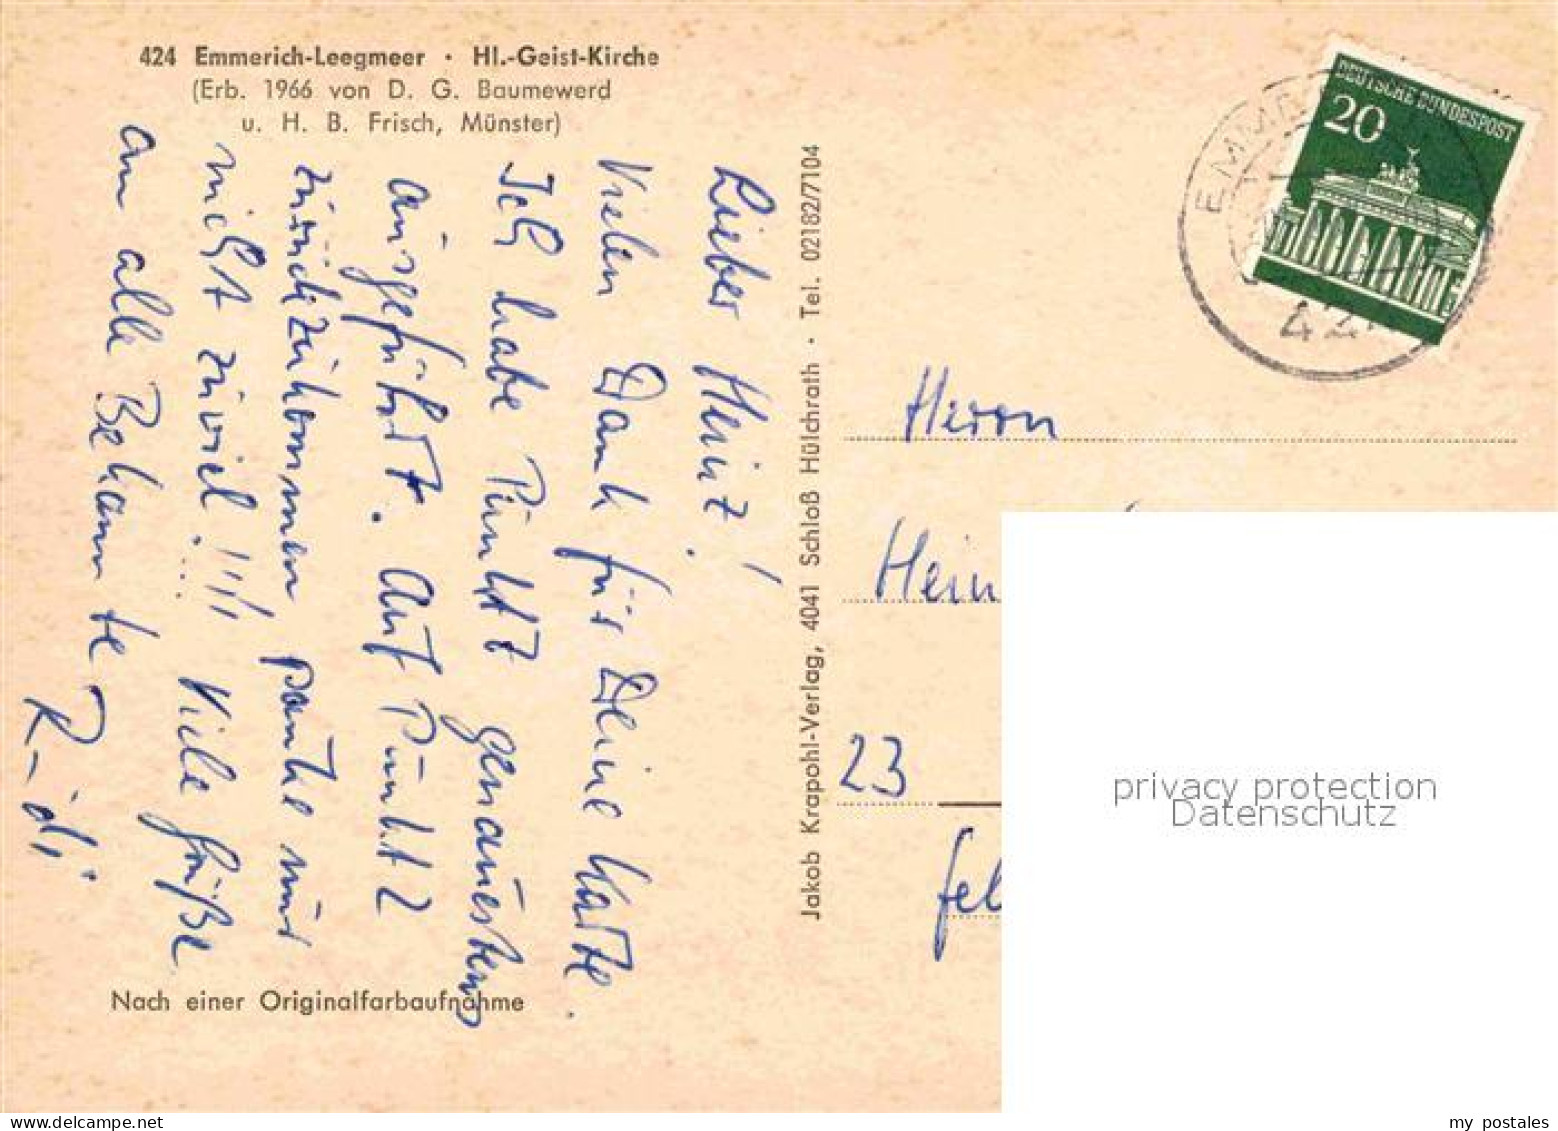 424 Emmerich-Leegmeer · Hl.-Geist-Kirche
(Erb. 1966 von D. G. Baumewerd
u. H. B. Frisch, Münster)
Lieber Heinz!
Vielen Dank für Deine Karte.
Ich habe Punkt genauestens
ausgeführt. Auf Punkt 2
zurückzukommen
nicht zuviel!!!! Viele Grüße
an alle Bekannte
Nach einer Originalfarbaufnahme
Jakob Krapohl-Verlag, 4041 Schloß Hülchrath · Tel. 02182/7104
DEUTSCHE BUNDESPOST
20
EMME
424
Herrn
Hein
23
fel
privacy protection
Datenschutz
my postales